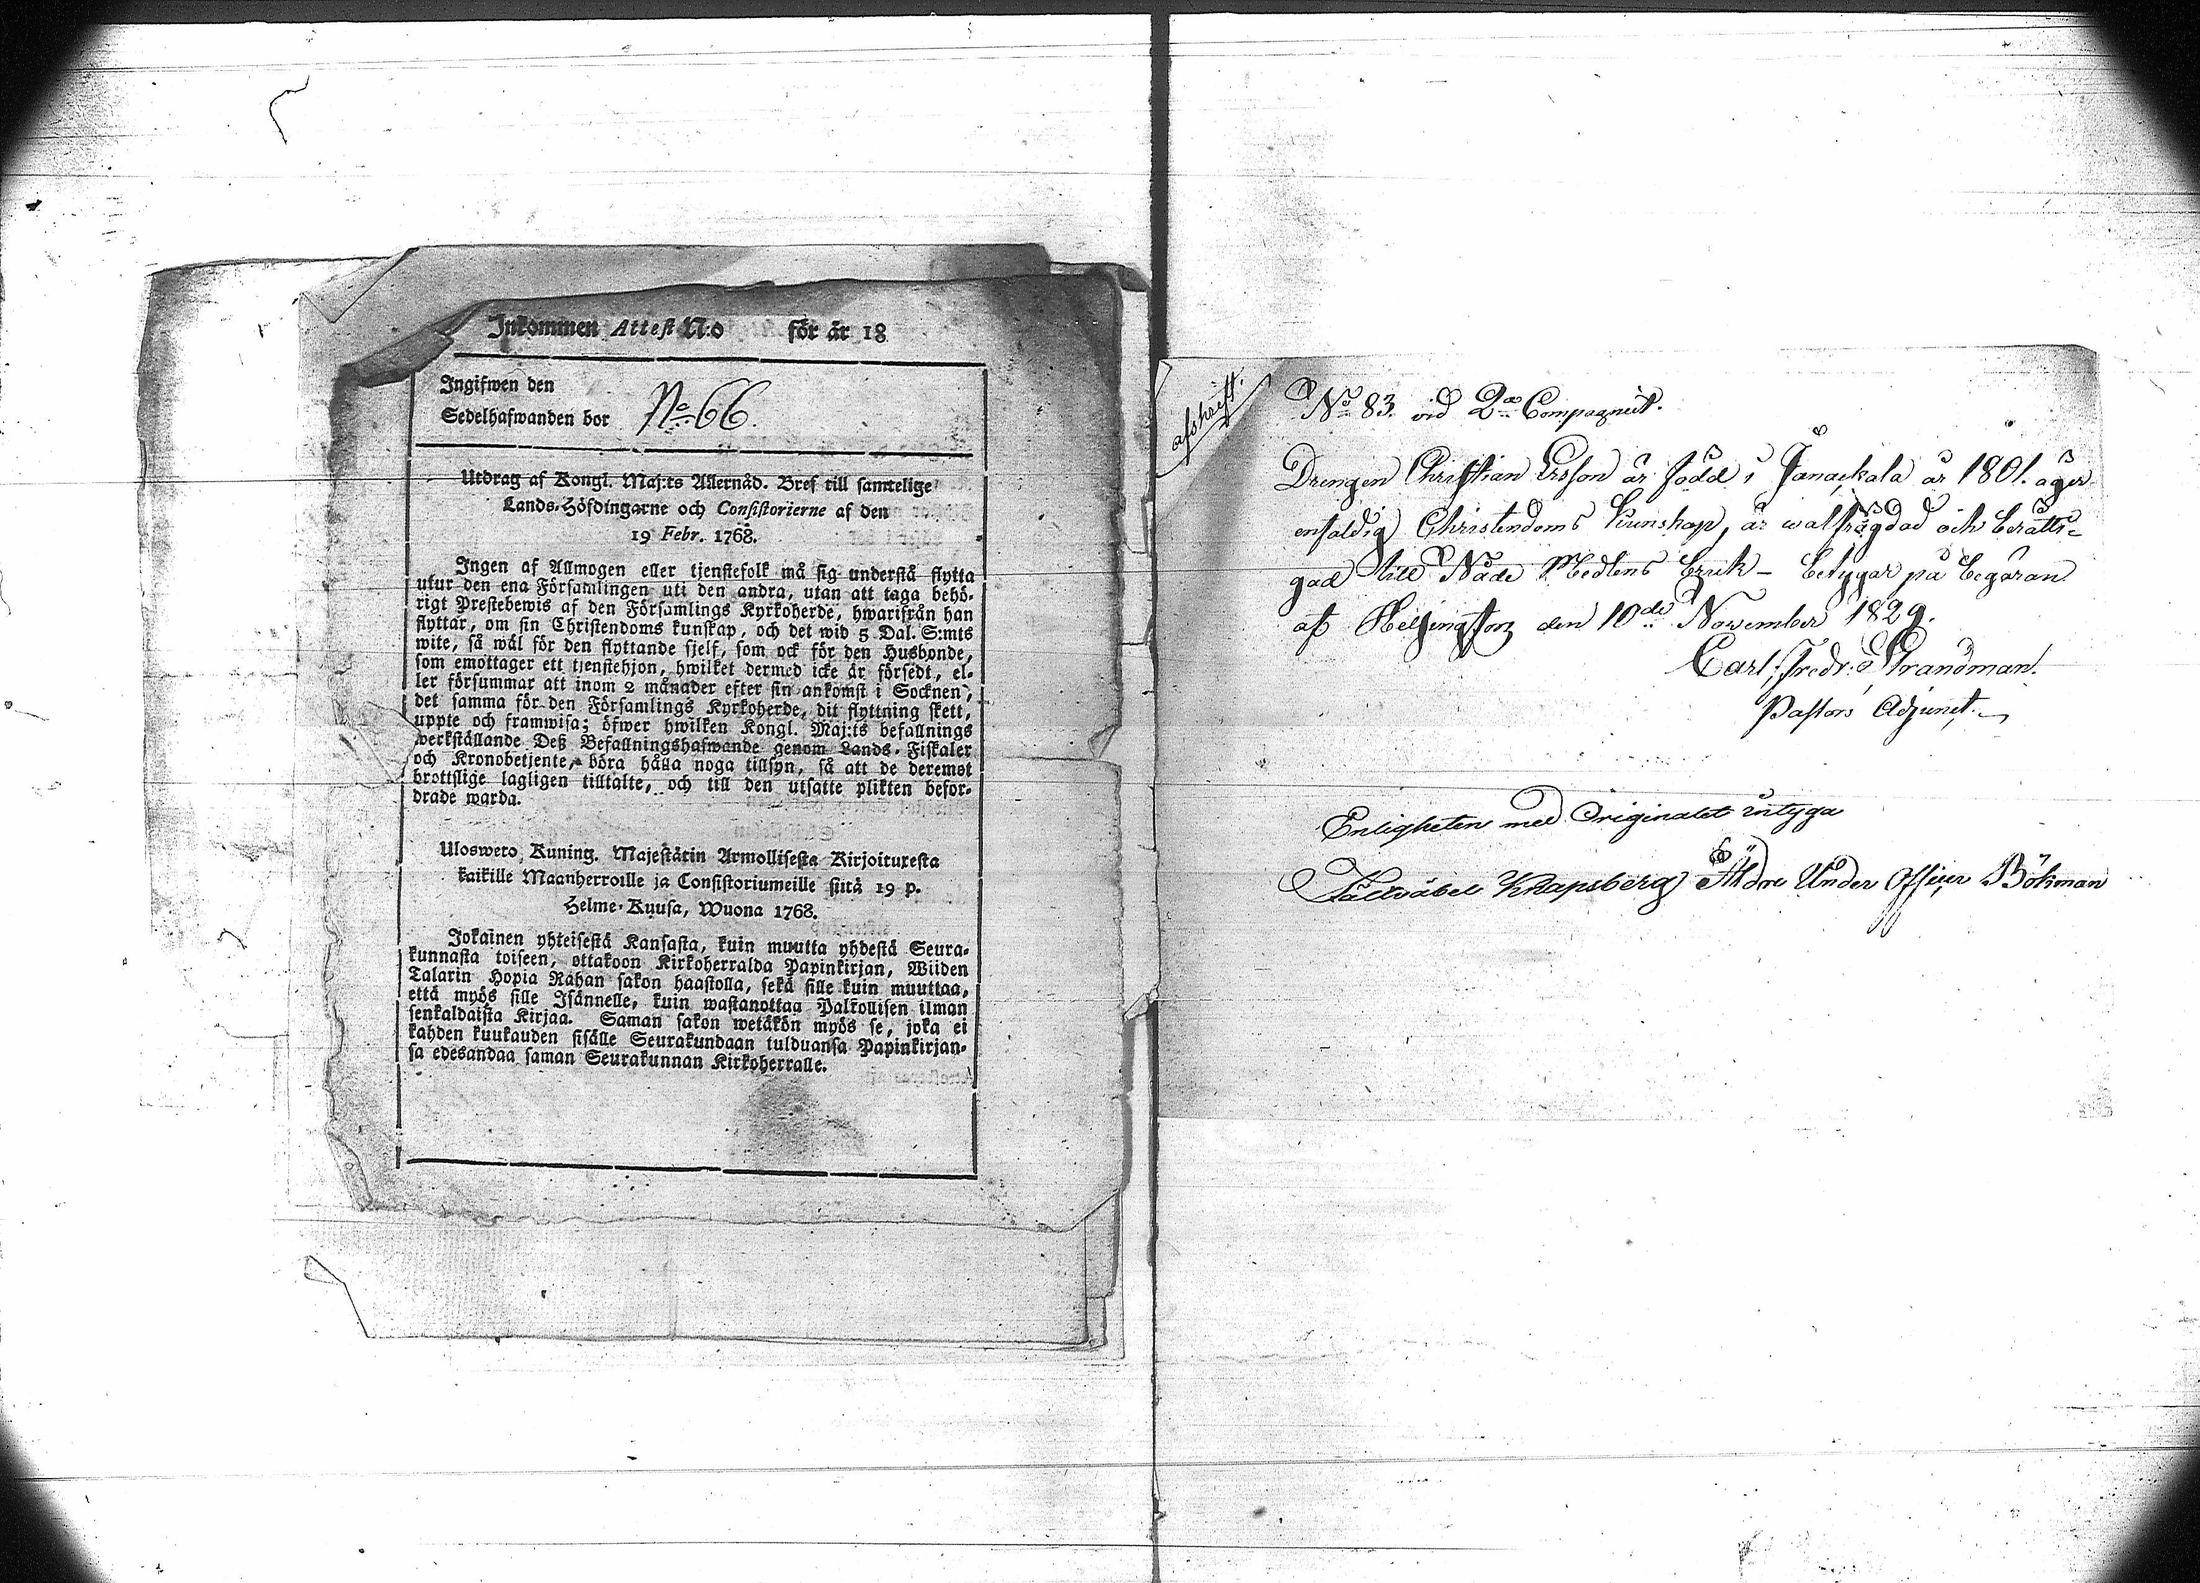 Inkommen Attest N:o för år 18
Ingifwen den
Sedelhafwanden bor No 66.
Utdrag af Kongl. Maj:ts Allernåd. Bref till samtelige
Lands-Höfdingarne och Consistorierne af den
19 Febr. 1768.
Ingen af Allmogen eller tjenstefolk må sig understå flytta
utur den ena Församlingen uti den andra, utan att taga behö-
rigt Prestebewis af den Församlings Kyrkoherde, hwarifrån han
flyttar, om sin Christendoms kunskap, och det wid 5 Dal. S:mts
wite, så wäl för den flyttande sjelf, som ock för den Husbonde,
som emottager ett tjenstehjon, hwilket dermed icke är försedt, el-
ler försummar att inom 2 månader efter sin ankomst i Socknen,
det samma för den Församlings Kyrkoherde, dit flyttning skett,
uppte och framwisa; öfwer hwilken Kongl. Maj:ts befallnings
werkställande Deß Befallningshafwande genom Lands-Fiskaler
och Kronobetjente, böra hålla noga tillsyn, så att de deremot
brottslige lagligen tilltalte, och till den utsatte plikten befor-
drade warda.
Uloswero Kuning. Majestätin Armollisesta Kirjoituresta
kaikille Maanherroille ja Consistoriumeille siitä 19 p.
Helme-Kuusa, Wuona 1768.
Jokainen yhteisestä Kansasta, kuin muutta yhdestä Seura-
kunnasta toiseen, ottakoon Kirkoherralda Papinkirjan, Wiiden
Talarin Hopia Rahan sakon haastolla, sekä sille kuin muuttaa,
että myös sille Isännelle, kuin wastanottaa Palkollisen ilman
senkaldaista Kirjaa. Saman sakon wetäkön myös se, joka ei
kahden kuukauden sisälle Seurakundaan tulduansa Papinkirjan-
sa edesandaa saman Seurakunnan Kirkoherralle.
afskrift.
No 83. vid 2a Compagniet.
Drengen Christian Ersson är född i Janackala år 1801. äger
enfaldig Christendoms kunskap, är walfrägdad och berätti-
gad till Nåde Medlens bruk – betygar på begäran
af Helsingfors den 10de November 1829.
Carl Fredr: Strandman.
Pastors Adjunct.
Enligheten med Originalet intyga
Fältväbel Knapsberg Äldre Under Officer Bökman